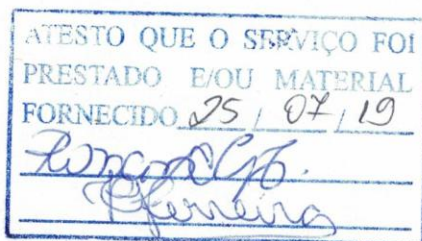 ATESTO QUE O SERVIÇO FOI
PRESTADO E/OU MATERIAL
FORNECIDO 25 / 07 / 19
Pferreira